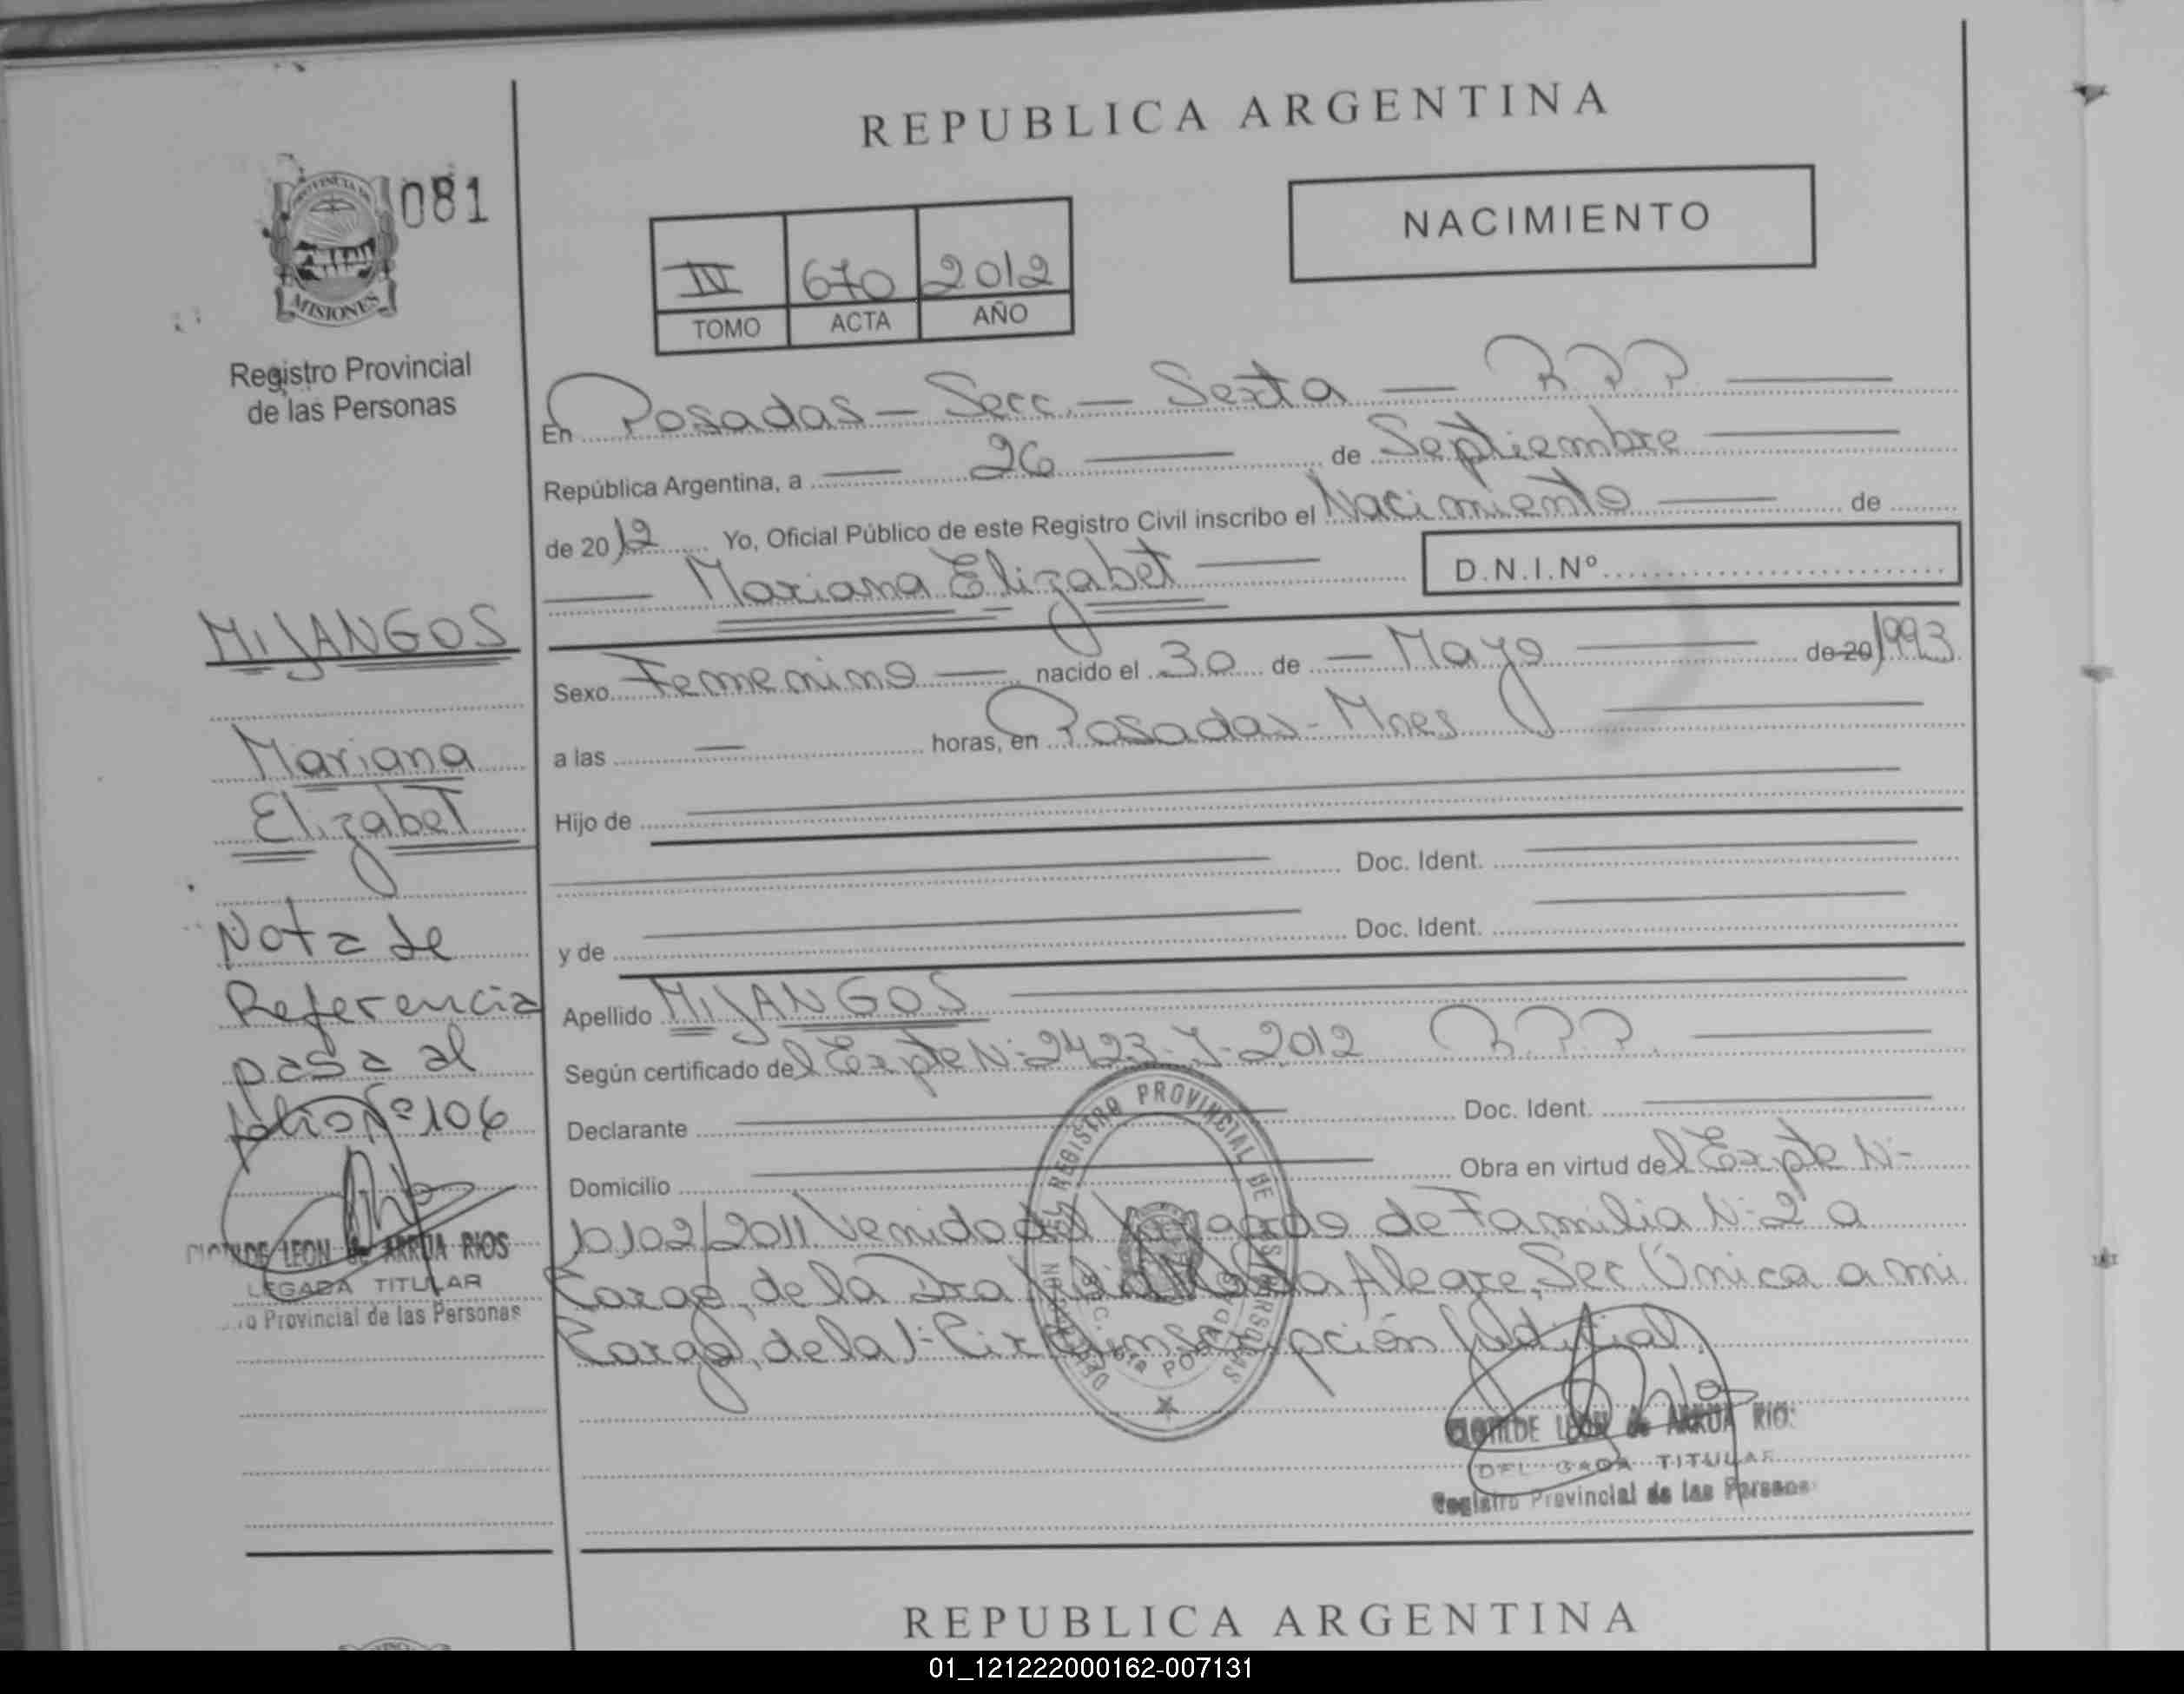 REPUBLICA ARGENTINA
PROVINCIA DE
MISIONES
081
Registro Provincial
de las Personas
NACIMIENTO
IV 670 2012
TOMO ACTA AÑO
En Posadas - Secc. - Sexta - R.P.P.
República Argentina, a 26 de Septiembre
de 2012 Yo, Oficial Público de este Registro Civil inscribo el Nacimiento de
Mariana Elizabet
D.N.I.Nº
Sexo Femenino nacido el 30 de Mayo de 20 1993
a las horas, en Posadas - Mnes
Hijo de
Doc. Ident.
y de Doc. Ident.
Apellido MIJANGOS
Según certificado del Expte N: 2423-J-2012 R.P.P.
Declarante Doc. Ident.
Domicilio Obra en virtud del Expte N-
10102/2011 Venido del Juzgado de Familia N: 2 a
Cargo, de la Dra Alegre, Sec Única a mi
Cargo, de la 1: Circunscripción Judicial.
MIJANGOS
Mariana
Elizabet
Nota de
Referencia
pasa al
folio Nº 106
LEON de ARRUA RIOS
LEGADA TITULAR
Provincial de las Personas
DEL REGISTRO PROVINCIAL DE LAS PERSONAS
CLOTILDE LEON de ARRUA RIOS
DELEGADA TITULAR
Registro Provincial de las Personas
REPUBLICA ARGENTINA
01_121222000162-007131